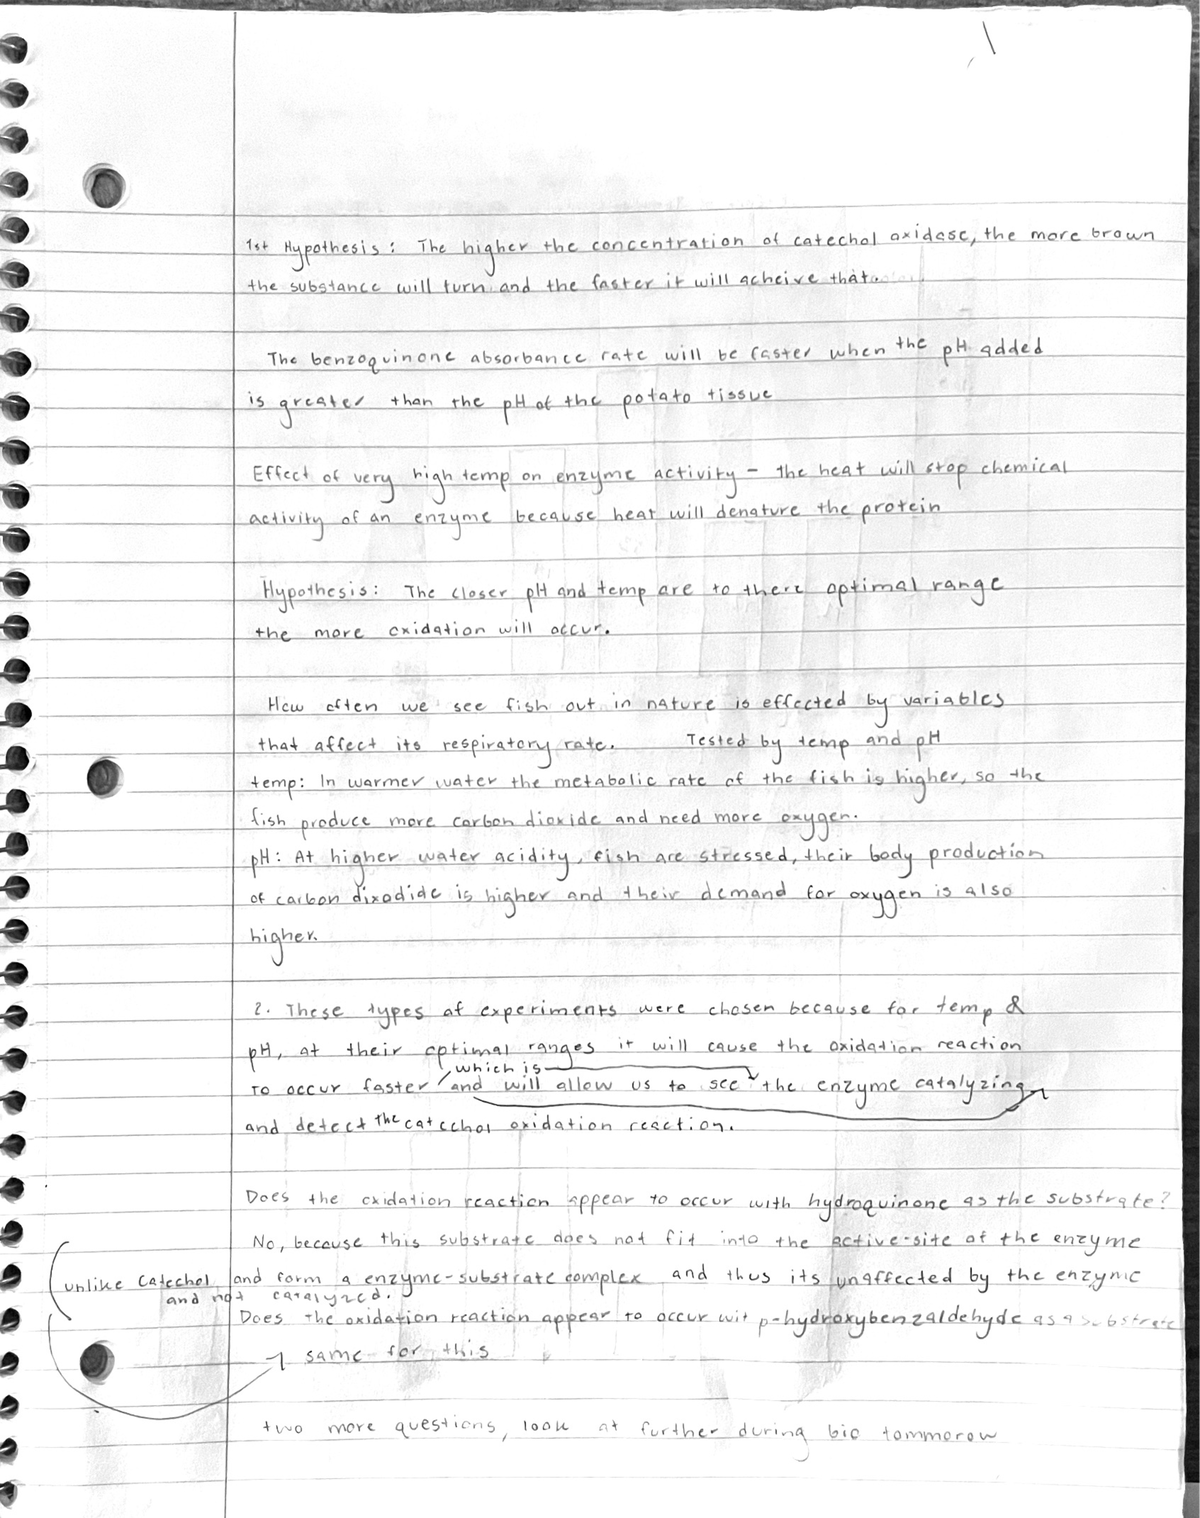 1st Hypothesis: The higher the concentration of catechol oxidase, the more brown
the substance will turn and the faster it will acheive that.
The benzoquinone absorbance rate will be faster when the pH added
is greater than the pH of the potato tissue
Effect of very high temp on enzyme activity - the heat will stop chemical
activity of an enzyme because heat will denature the protein
Hypothesis: The closer pH and temp are to there optimal range
the more oxidation will occur.
How often we see fish out in nature is effected by variables
that affect its respiratory rate. Tested by temp and pH
temp: In warmer water the metabolic rate of the fish is higher, so the
fish produce more carbon dioxide and need more oxygen.
pH: At higher water acidity, fish are stressed, their body production
of carbon dixodide is higher and their demand for oxygen is also
higher.
2. These types of experiments were chosen because for temp &
pH, at their optimal ranges it will cause the oxidation reaction
which is
to occur faster and will allow us to see the enzyme catalyzing
and detect the catechol oxidation reaction.
Does the oxidation reaction appear to occur with hydroquinone as the substrate?
No, because this substrate does not fit into the active-site of the enzyme
unlike catechol and form a enzyme-substrate complex and thus its unaffected by the enzyme
and not catalyzed.
Does the oxidation reaction appear to occur wit p-hydroxybenzaldehyde as a substrate
same for this
two more questions, look at further during bio tommorow